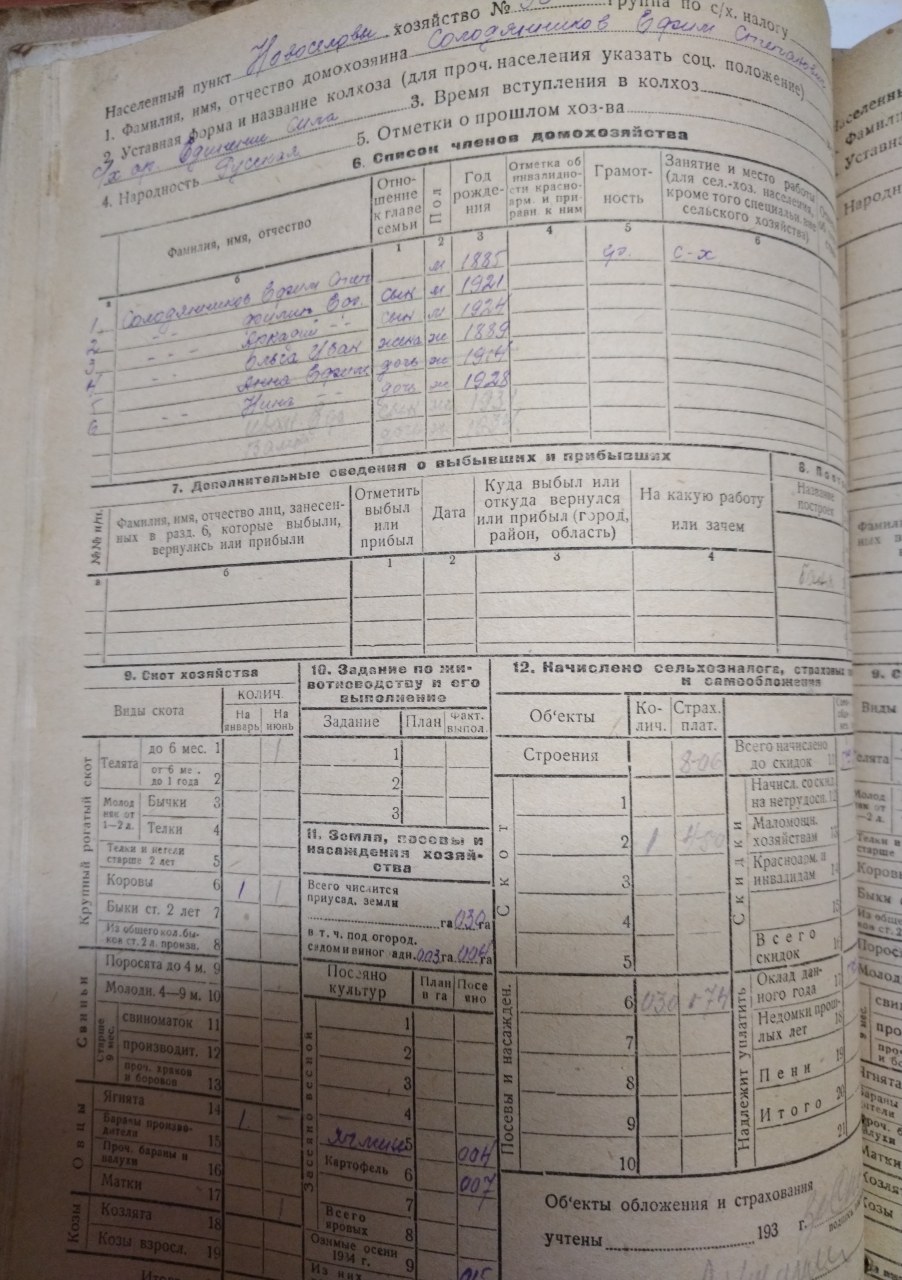 Населенный пункт Новоселовы хозяйство № Группа по с/х. налогу
1. Фамилия, имя, отчество домохозяина Солодянников Ефим Степанович
2. Уставная форма и название колхоза (для проч. населения указать соц. положение)
с/х ап. Единение Сила 3. Время вступления в колхоз
4. Народность Русская 5. Отметки о прошлом хоз-ва
6. Список членов домохозяйства
Фамилия, имя, отчество
Отно-
шение
к главе
семьи
Пол
Год
рожде-
ния
Отметка об
инвалидно-
сти красно-
арм. и при-
равн к ним
Грамот-
ность
Занятие и место работы
(для сел.-хоз. населения,
кроме того специальн. вне
сельского хозяйства)
б 1 2 3 4 5 6
1. Солодянников Ефим Степ м 1885 гр. с-х
2 -"- Филип Еф. сын м 1921
3 -"- Аркадий -"- сын м 1924
4 -"- Ольга Иван жена ж 1889
5 Анна Ефим дочь ж 1914
6 -"- Нина -"- дочь ж 1928
сын
дочь ж
7. Дополнительные сведения о выбывших и прибывших
№№ п/п.
Фамилия, имя, отчество лиц, занесен-
ных в разд. 6, которые выбыли,
вернулись или прибыли
Отметить
выбыл
или
прибыл
Дата
Куда выбыл или
откуда вернулся
или прибыл (город,
район, область)
На какую работу
или зачем
а б 1 2 3 4
8. Пост
Название
построек
баня
9. Скот хозяйства
Виды скота
колич.
На январь
На июнь
Крупный рогатый скот
Телята
до 6 мес. 1 1
от 6 ме.
до 1 года 2
Молод
няк от
1—2 л.
Бычки 3
Телки 4
Телки и нетели
старше 2 лет 5
Коровы 6 1 1
Быки ст. 2 лет 7
Из общего кол. бы-
ков ст. 2 л. произв. 8
Свиньи
Поросята до 4 м. 9
Молодн. 4—9 м. 10
старше
9 мес.
свиноматок 11
производит. 12
проч. хряков
и боровов 13
Овцы
Ягнята 14 1 —
Бараны произво-
дители 15
Проч. бараны и
валухи 16
Матки 17 1
Козы
Козлята 18
Козы взросл. 19
10. Задание по жи-
вотноводству и его
выполнение
Задание План Факт.
выпол.
1
2
3
11. Земля, посевы и
насаждения хозяй-
ства
Всего числится
приусад. земли
га 030 га
в т. ч. под огород.
садом и виноградн. 003 га 004 га
Посеяно
культур
План
в га
Посе
яно
Засеяно весной
1
2
3
4
ячмень 5 004
Картофель 6 007
7
Всего
яровых 8
Озимые осени
1934 г. 9 015
Из них
12. Начислено сельхозналога, страховых
и самообложения
Об'екты
Ко-
лич.
Страх.
плат.
Строения 8-06
Скот
1
2 1 4-50
3
4
5
Посевы и насажден.
6 030 1-74
7
8
9
10
Всего начислено
до скидок 11
Скидки
Начисл. со скид.
на нетрудосп. 12
Маломощн.
хозяйствам 13
Красноарм. и
инвалидам 14
15
Всего
скидок 16
Надлежит уплатить
Оклад дан-
ного года 17
Недоимки прош-
лых лет 18
Пени 19
Итого 20
21
Об'екты обложения и страхования
учтены 193 г.